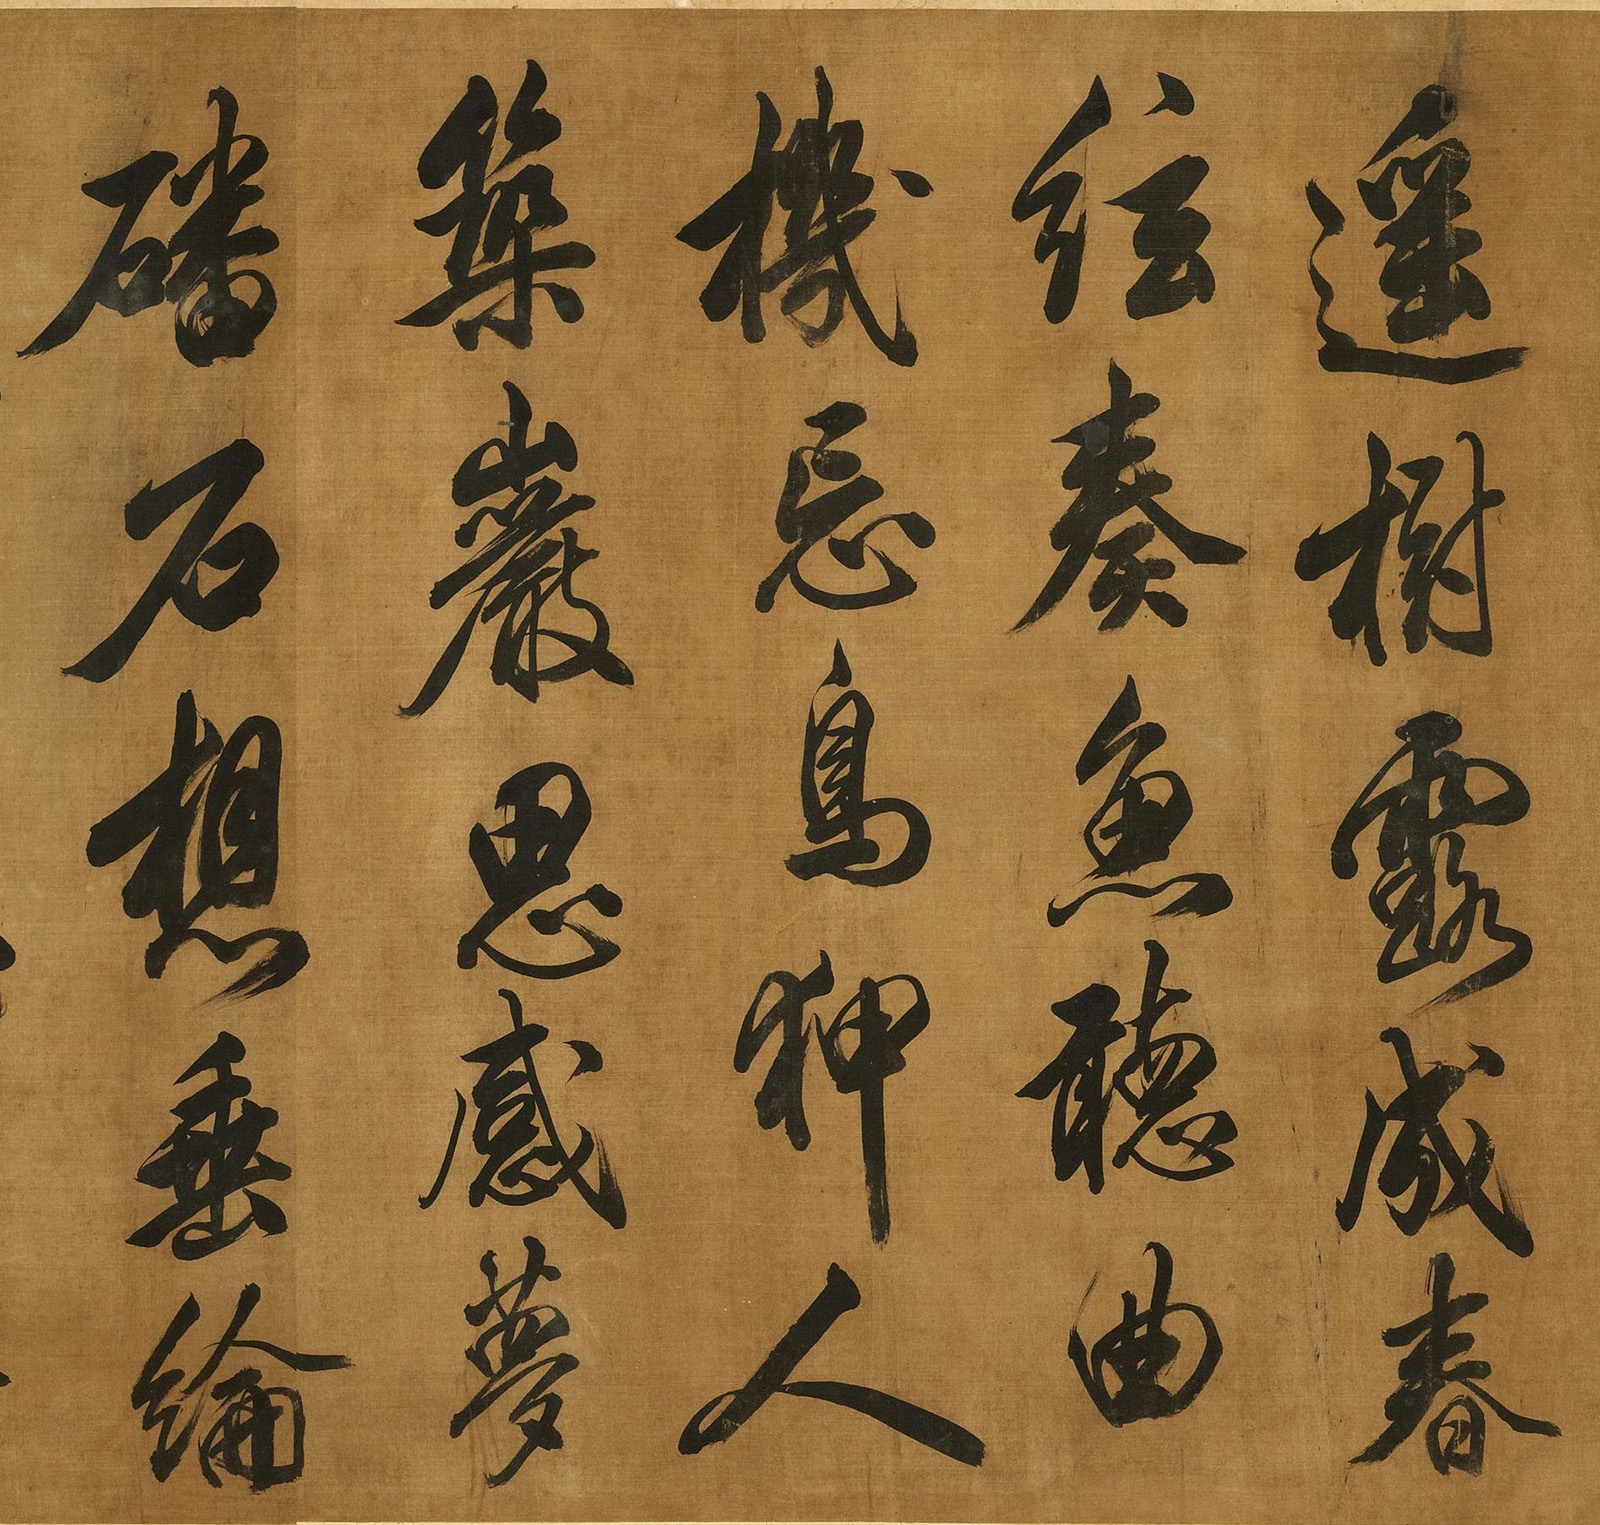 遥樹露成春
絃奏魚聽曲
機忘鳥狎人
築巖思感夢
磻石想垂綸